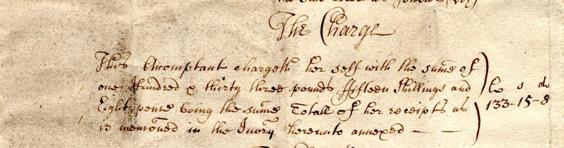 The Charge
This Accomptant chargeth her self with the sume of
one Hundred & thirty three pounds fifteen Shillings and
Eight pence being the sume Totall of her receipts as
is menconed in the Invry hereunto annexed —
li s d
133-15-8